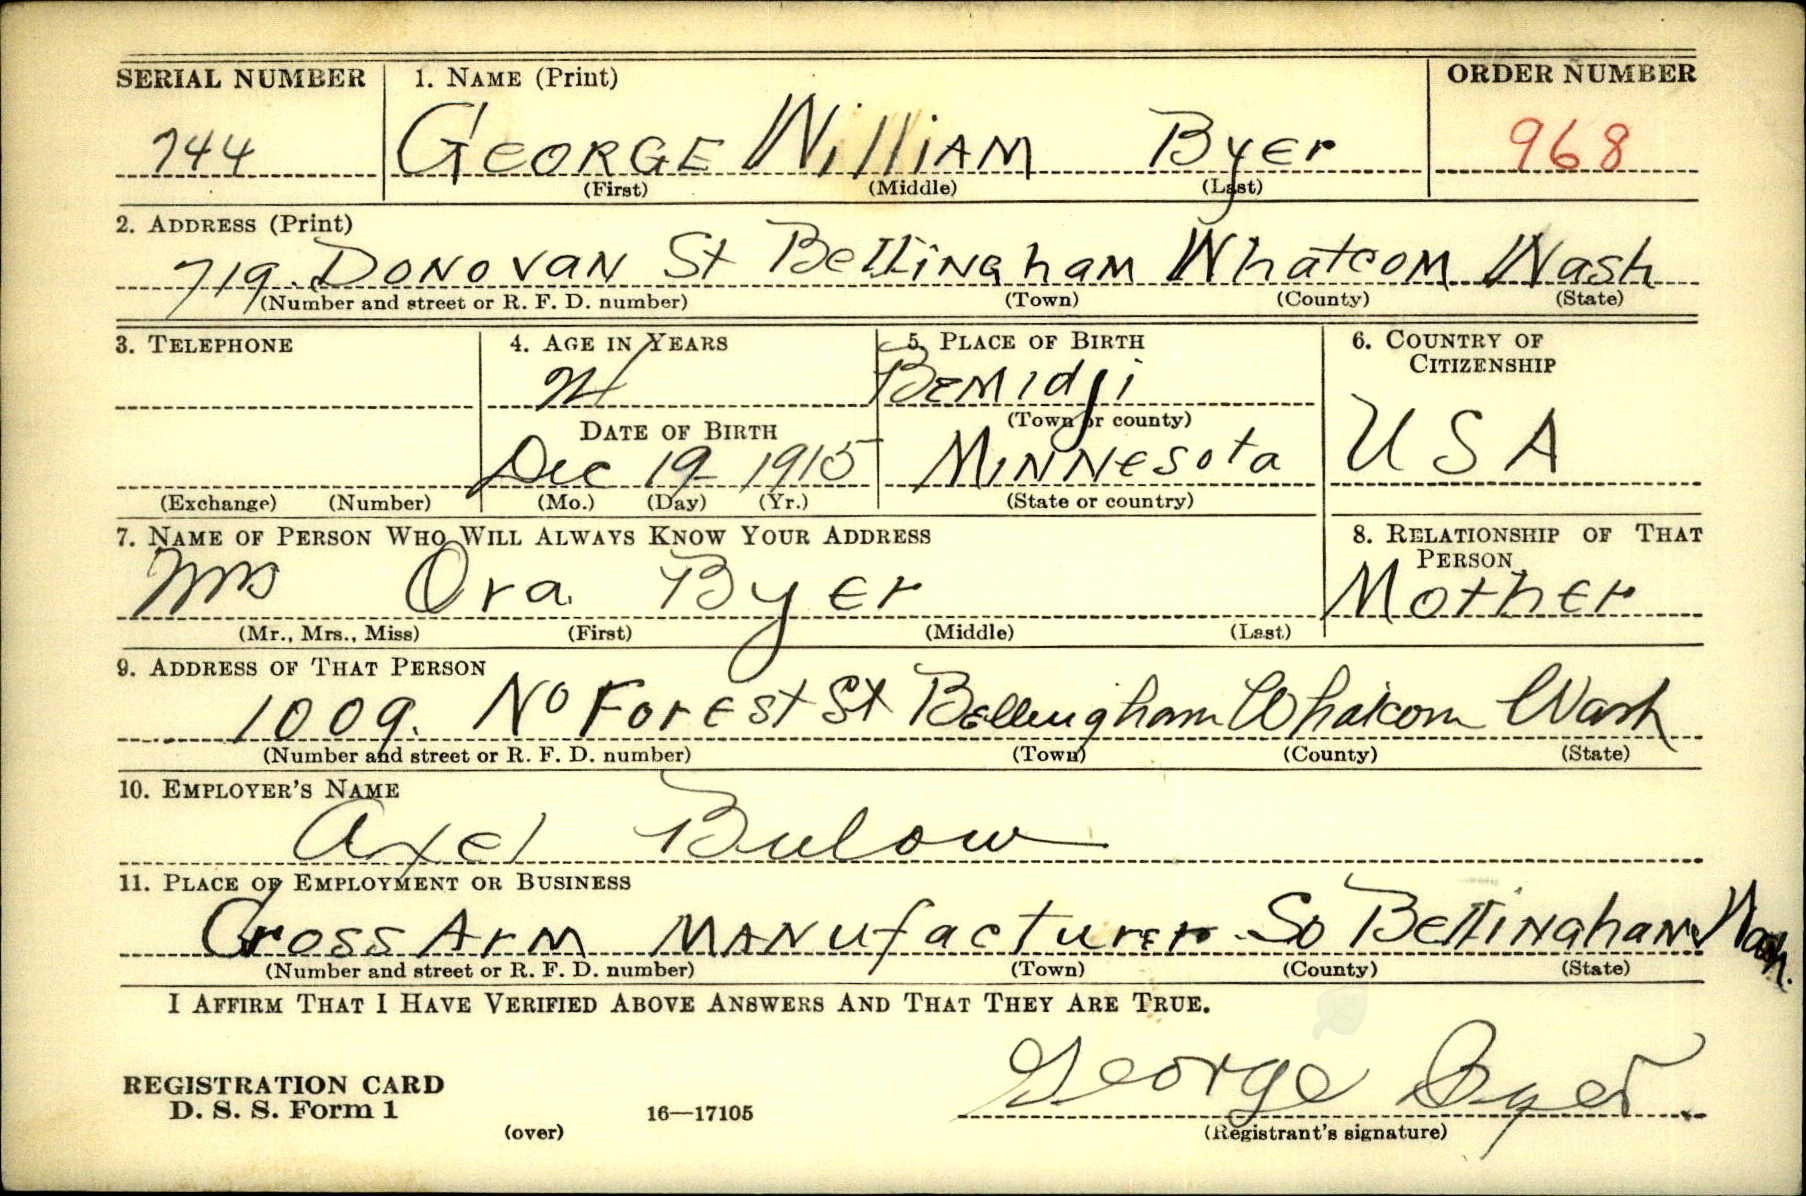 SERIAL NUMBER 1. NAME (Print) ORDER NUMBER
744 GEORGE WilliAM Byer 968
(First) (Middle) (Last)
2. ADDRESS (Print)
719. DONOVAN St Bellingham Whatcom Wash
(Number and street or R. F. D. number) (Town) (County) (State)
3. TELEPHONE 4. AGE IN YEARS 5. PLACE OF BIRTH 6. COUNTRY OF CITIZENSHIP
24 Bemidji USA
(Town or county)
DATE OF BIRTH
Dec 19 1915 Minnesota
(Exchange) (Number) (Mo.) (Day) (Yr.) (State or country)
7. NAME OF PERSON WHO WILL ALWAYS KNOW YOUR ADDRESS 8. RELATIONSHIP OF THAT PERSON
Mrs Ora Byer Mother
(Mr., Mrs., Miss) (First) (Middle) (Last)
9. ADDRESS OF THAT PERSON
1009. No Forest St Bellingham Whatcom Wash
(Number and street or R. F. D. number) (Town) (County) (State)
10. EMPLOYER'S NAME
Axel Bulow
11. PLACE OF EMPLOYMENT OR BUSINESS
Cross Arm Manufacturer So Bellingham Wash.
(Number and street or R. F. D. number) (Town) (County) (State)
I AFFIRM THAT I HAVE VERIFIED ABOVE ANSWERS AND THAT THEY ARE TRUE.
George Byer.
REGISTRATION CARD
D. S. S. Form 1 16—17105
(over) (Registrant's signature)